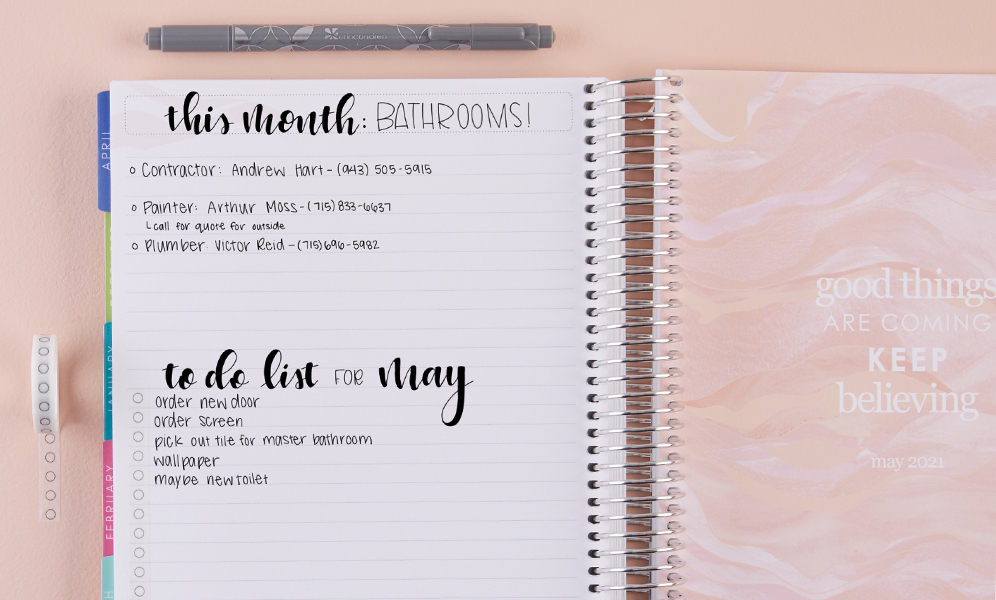 erincondren
this month: BATHROOMS!
Contractor: Andrew Hart - (943) 505-5915
Painter: Arthur Moss - (715) 833-6637
call for quote for outside
Plumber: Victor Reid - (715) 696-5982
to do list FOR may
order new door
order screen
pick out tile for master bathroom
wallpaper
maybe new toilet
APRIL
JANUARY
FEBRUARY
H
good things
ARE COMING
KEEP
believing
may 2021